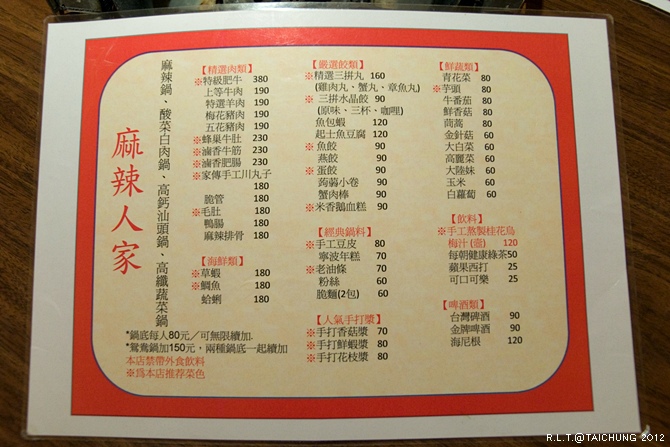 麻辣人家
麻辣鍋、酸菜白肉鍋、高鈣汕頭鍋、高纖蔬菜鍋
【精選肉類】
※特級肥牛 380
上等牛肉 190
特選羊肉 190
梅花豬肉 190
五花豬肉 190
※蜂巢牛肚 230
※滷香牛筋 230
※滷香肥腸 230
※家傳手工川丸子
180
脆管 180
※毛肚 180
鴨腸 180
麻辣排骨 180
【海鮮類】
※草蝦 180
※鯛魚 180
蛤蜊 180
*鍋底每人80元／可無限續加.
*鴛鴦鍋加150元，兩種鍋底一起續加
本店禁帶外食飲料
※為本店推荐菜色
【嚴選餃類】
※精選三拼丸 160
(雞肉丸、蟹丸、章魚丸)
※三拼水晶餃 90
(原味、三杯、咖哩)
魚包蝦 120
起士魚豆腐 120
※魚餃 90
燕餃 90
※蛋餃 90
蒟蒻小卷 90
蟹肉棒 90
※米香鵝血糕 90
【經典鍋料】
※手工豆皮 80
寧波年糕 70
※老油條 70
粉絲 60
脆麵(2包) 60
【人氣手打漿】
※手打香菇漿 70
※手打鮮蝦漿 80
※手打花枝漿 80
【鮮蔬類】
青花菜 80
※芋頭 80
牛番茄 80
鮮香菇 80
茼蒿 80
金針菇 60
大白菜 60
高麗菜 60
大陸妹 60
玉米 60
白蘿蔔 60
【飲料】
※手工熬製桂花烏
梅汁(壺) 120
每朝健康綠茶50
蘋果西打 25
可口可樂 25
【啤酒類】
台灣碑酒 90
金牌啤酒 90
海尼根 120
R.L.T.@TAICHUNG 2012